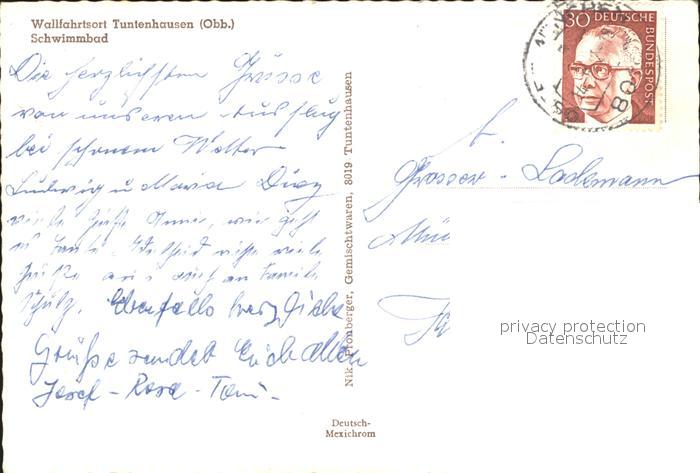 Wallfahrtsort Tuntenhausen (Obb.)
Schwimmbad
Die herzlichsten Grüsse
von unseren Ausflug
bei schönem Wetter
Ludwig u Maria
viele Grüße Anni, wie geht
viele
Grüße auch an Familie
Schulz. Ebenfalls herzliche
Grüße sendet Euch allen
Josef - Rosa - Toni.
Nik. Pfonberger, Gemischtwaren, 8019 Tuntenhausen
Deutsch-
Mexichrom
30 DEUTSCHE
BUNDESPOST
Grosser - Lackmann
Mün
privacy protection
Datenschutz